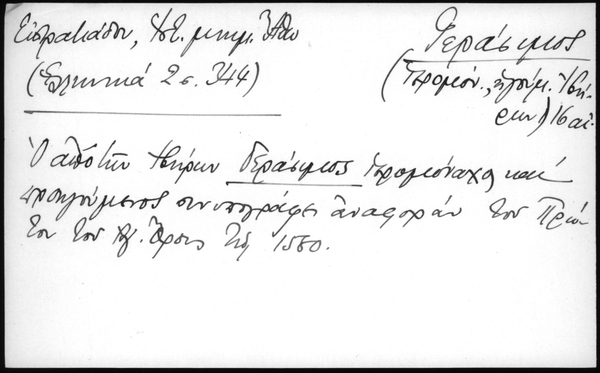 Εὐστρατιάδου, Ἱστ. μνημ. Ἄθω
(Ἑλληνικά 2 σ. 344)
Γεράσιμος
(Ἱερομόν., ἡγούμ. Ἰβή-
ρων) 16 αἰ.
Ὁ ἀπὸ τῶν Ἰβήρων Γεράσιμος ἱερομόναχος καὶ
προηγούμενος συνυπογράφει ἀναφορὰν τοῦ Πρώ-
του τοῦ Ἁγ. Ὄρους τῷ 1580.